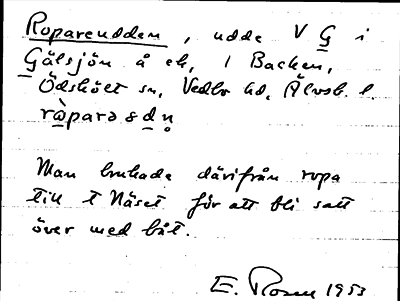 Ropareudden, udde V G i
Gälsjön å ek, i Backen,
Ödskölt sn, Vedbo hd, Älvsb. l.
ròparəədṇ
Man brukade därifrån ropa
till t Näset för att bli satt
över med båt.
E. Rosen 1953